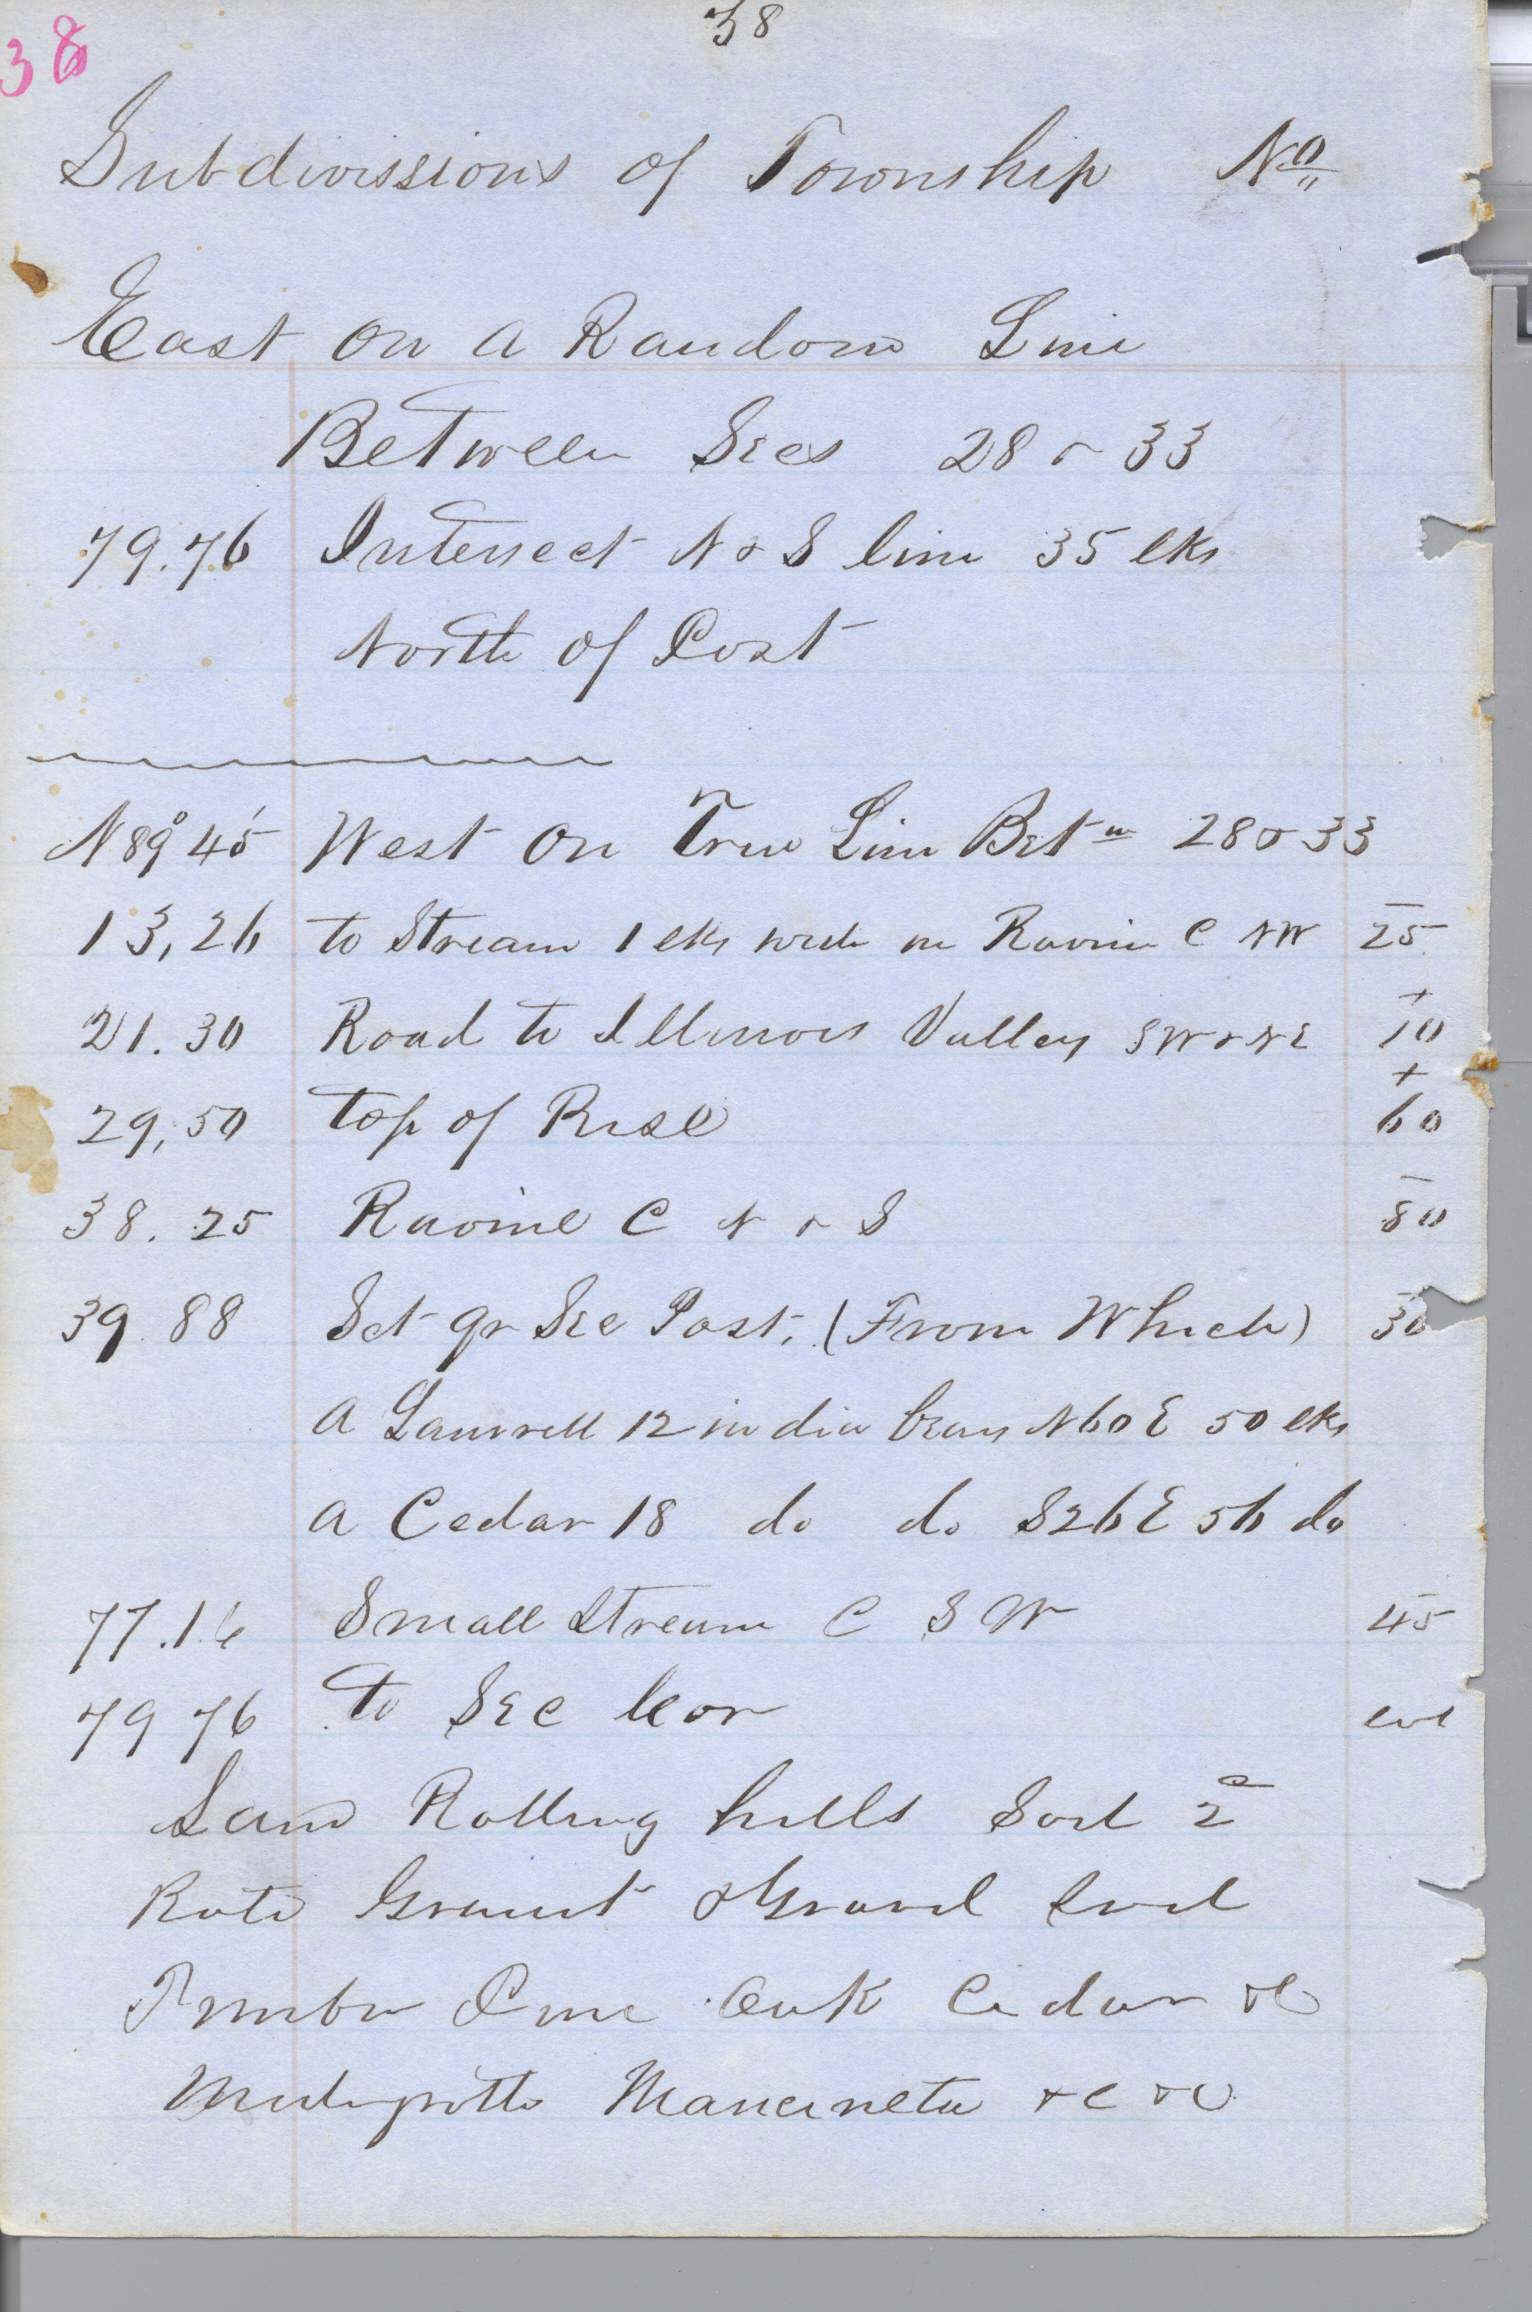 38
38
Subdivissions of Township No
East on a Random Line
Between Secs 28 & 33
79.76 Intersect N & S line 35 lks
North of Post
N 89° 45' West on True Line Betn 28 & 33
13,26 to Stream 1 lks wide in Ravine C NW - 25
21.30 Road to Illinois Valley SW & NE + 10
29,50 top of Rise + 60
38.25 Ravine C N & S - 80
39 88 Set qr Sec Post, (From Which) 30
a Laurell 12 in dia bears N60E 50 lks
a Cedar 18 do do S26E 56 do
77.16 Small Stream C SW - 45
79 76 to Sec Cor
Land Rolling hills Soil 2
Rate Granit & Gravel Soil
Timber Pine Oak Cedar &c
Mancineta &c &c